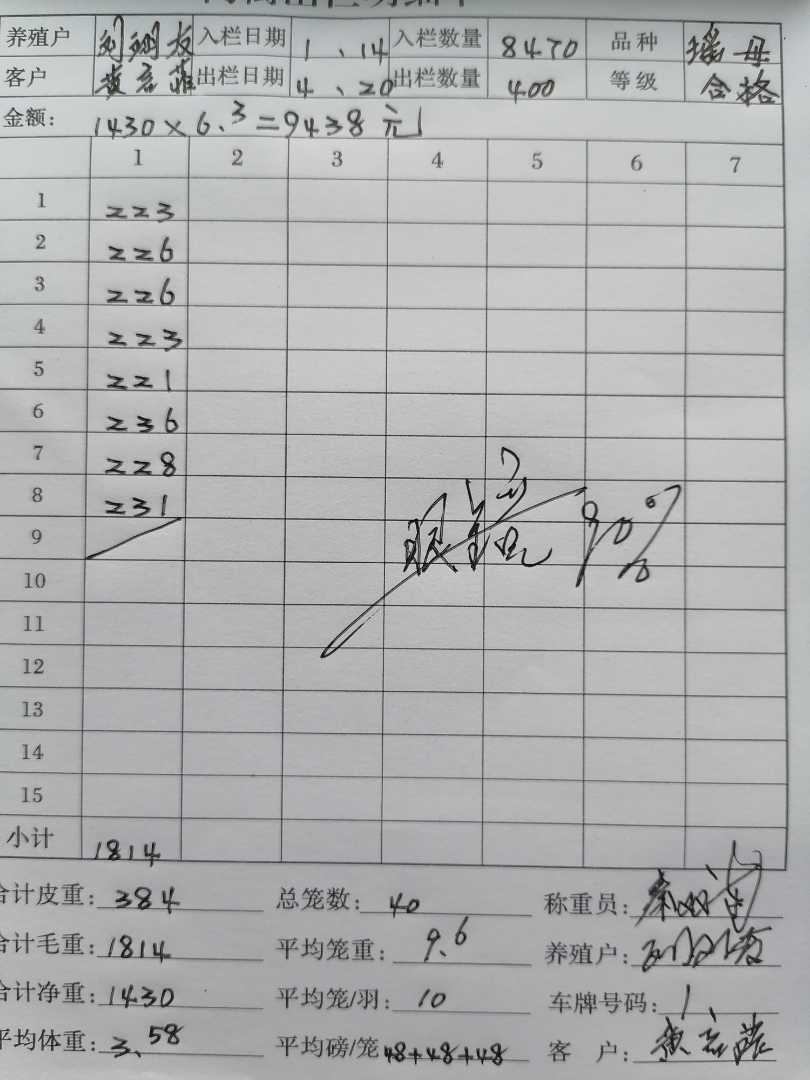 养殖户 刘翊友 入栏日期 1、14 入栏数量 8470 品种 瑶母
客户 黄志雄 出栏日期 4、20 出栏数量 400 等级 合格
金额: 1430×6.3=9438元
1 2 3 4 5 6 7
1 223
2 226
3 226
4 223
5 221
6 236
7 228
8 231
9
10
11
12
13
14
15
90%
小计 1814
合计皮重: 384 总笼数: 40 称重员:
合计毛重: 1814 平均笼重: 9.6 养殖户:
合计净重: 1430 平均笼/羽: 10 车牌号码: 1、
平均体重: 3.58 平均磅/笼 48+48+48 客 户: